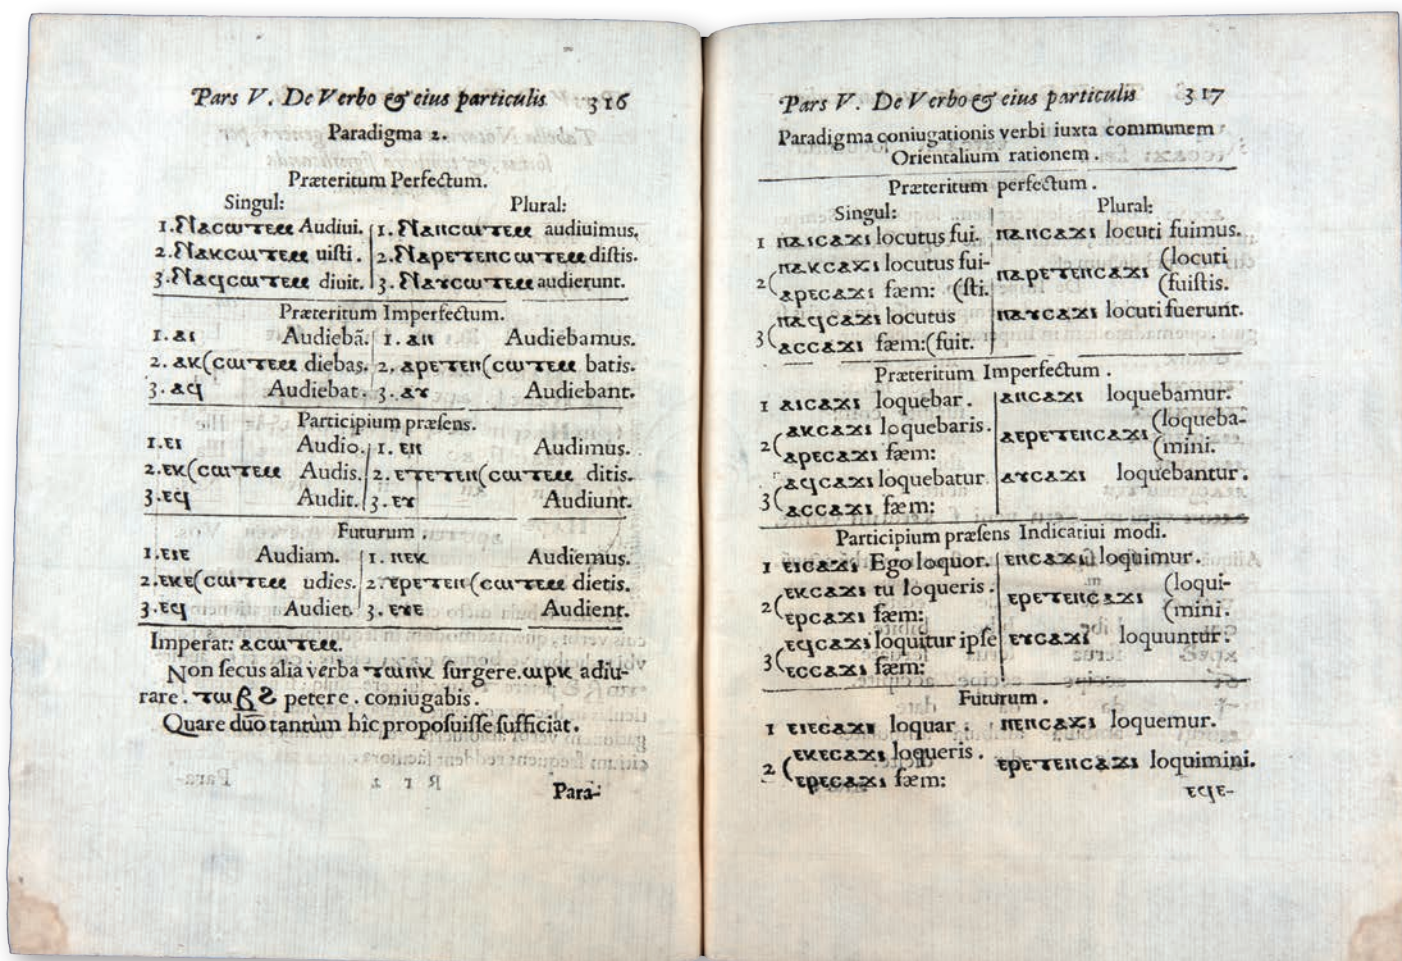 Pars V. De Verbo & eius particulis 316
Paradigma 2.
Præteritum Perfectum.
Singul: Plural:
1. Ⲛⲁⲥⲱⲧⲉⲙ Audiui. 1. Ⲛⲁⲛⲥⲱⲧⲉⲙ audiuimus,
2. Ⲛⲁⲕⲥⲱⲧⲉⲙ uisti. 2. Ⲛⲁⲣⲉⲧⲉⲛⲥⲱⲧⲉⲙ distis.
3. Ⲛⲁϥⲥⲱⲧⲉⲙ diuit. 3. Ⲛⲁⲩⲥⲱⲧⲉⲙ audierunt.
Præteritum Imperfectum.
1. ⲁⲓ Audiebā. 1. ⲁⲛ Audiebamus.
2. ⲁⲕ(ⲥⲱⲧⲉⲙ diebas. 2. ⲁⲣⲉⲧⲉⲛ(ⲥⲱⲧⲉⲙ batis.
3. ⲁϥ Audiebat. 3. ⲁⲩ Audiebant.
Participium præsens.
1. ⲉⲓ Audio. 1. ⲉⲛ Audimus.
2. ⲉⲕ(ⲥⲱⲧⲉⲙ Audis. 2. ⲉⲧⲉⲧⲉⲛ(ⲥⲱⲧⲉⲙ ditis.
3. ⲉϥ Audit. 3. ⲉⲩ Audiunt.
Futurum.
1. ⲉⲓⲉ Audiam. 1. ⲛⲉⲕ Audiemus.
2. ⲉⲕⲉ(ⲥⲱⲧⲉⲙ udies. 2. ⲉⲣⲉⲧⲉⲛ(ⲥⲱⲧⲉⲙ dietis.
3. ⲉϥ Audiet. 3. ⲉⲩⲉ Audient.
Imperat: ⲁⲥⲱⲧⲉⲙ.
Non secus alia verba ⲧⲱⲛⲕ surgere. ⲱⲣⲕ adiu-
rare. petere. coniugabis.
Quare duo tantùm hîc proposuisse sufficiat.
Para-
Pars V. De Verbo & eius particulis 317
Paradigma coniugationis verbi iuxta communem
Orientalium rationem.
Præteritum perfectum.
Singul: Plural:
1 ⲛⲁⲓⲥⲁϫⲓ locutus fui. ⲛⲁⲛⲥⲁϫⲓ locuti fuimus.
2 (ⲛⲁⲕⲥⲁϫⲓ locutus fui- ⲛⲁⲣⲉⲧⲉⲛⲥⲁϫⲓ (locuti
ⲁⲣⲉⲥⲁϫⲓ fæm: (sti. (fuistis.
3 (ⲛⲁϥⲥⲁϫⲓ locutus ⲛⲁⲩⲥⲁϫⲓ locuti fuerunt.
ⲁⲥⲥⲁϫⲓ fæm: (fuit.
Præteritum Imperfectum.
1 ⲁⲓⲥⲁϫⲓ loquebar. ⲁⲛⲥⲁϫⲓ loquebamur.
2 (ⲁⲕⲥⲁϫⲓ loquebaris. ⲁⲉⲣⲉⲧⲉⲛⲥⲁϫⲓ (loqueba-
ⲁⲣⲉⲥⲁϫⲓ fæm: (mini.
3 (ⲁϥⲥⲁϫⲓ loquebatur ⲁⲩⲥⲁϫⲓ loquebantur.
ⲁⲥⲥⲁϫⲓ fæm:
Participium præsens Indicatiui modi.
1 ⲉⲓⲥⲁϫⲓ Ego loquor. ⲉⲛⲥⲁϫⲓ loquimur.
2 (ⲉⲕⲥⲁϫⲓ tu loqueris. ⲉⲣⲉⲧⲉⲛⲥⲁϫⲓ (loqui-
ⲉⲣⲥⲁϫⲓ fæm: (mini.
3 (ⲉϥⲥⲁϫⲓ loquitur ipse ⲉⲩⲥⲁϫⲓ loquuntur.
ⲉⲥⲥⲁϫⲓ fæm:
Futurum.
1 ⲉⲓⲉⲥⲁϫⲓ loquar. ⲛⲉⲛⲥⲁϫⲓ loquemur.
2 (ⲉⲕⲉⲥⲁϫⲓ loqueris. ⲉⲣⲉⲧⲉⲛⲥⲁϫⲓ loquimini.
ⲉⲣⲉⲥⲁϫⲓ fæm:
ⲉϥⲉ-